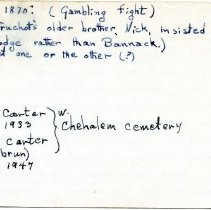 1870: (Gambling fight)
Truchot's older brother, Nick, insisted
odge rather than Bannack.)
t one or the other (?)
Carter } w.
1933 Chehalem cemetery
Carter
brun)
1947